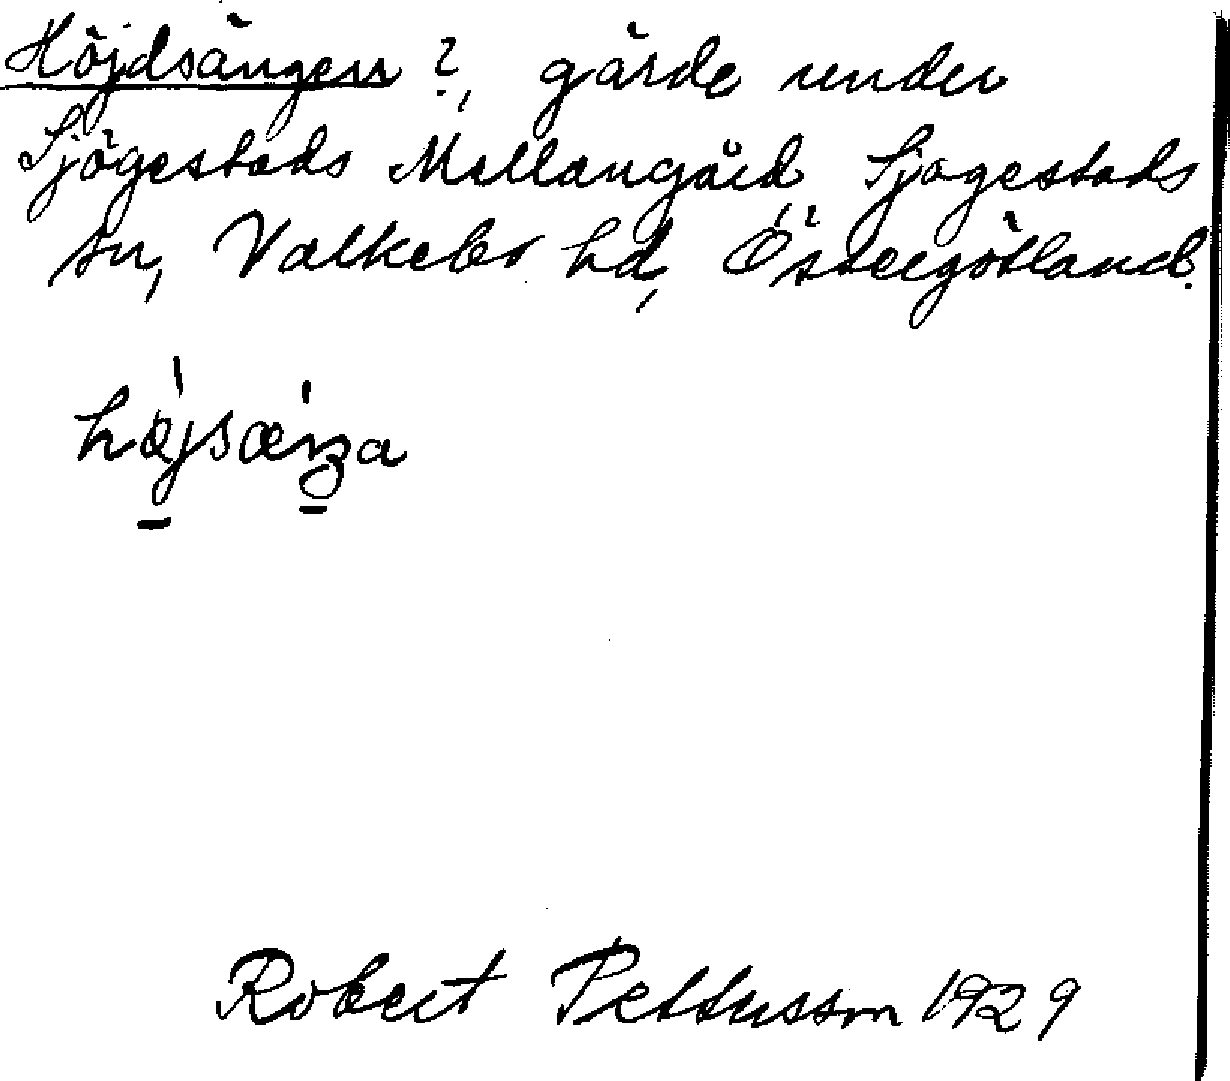 Höjdsängen?, gärde under
Sjögestads Mellangård Sjögestads
sn, Valkebo hd, Östergötland.
höjsæŋa
Robert Pettersson 1929